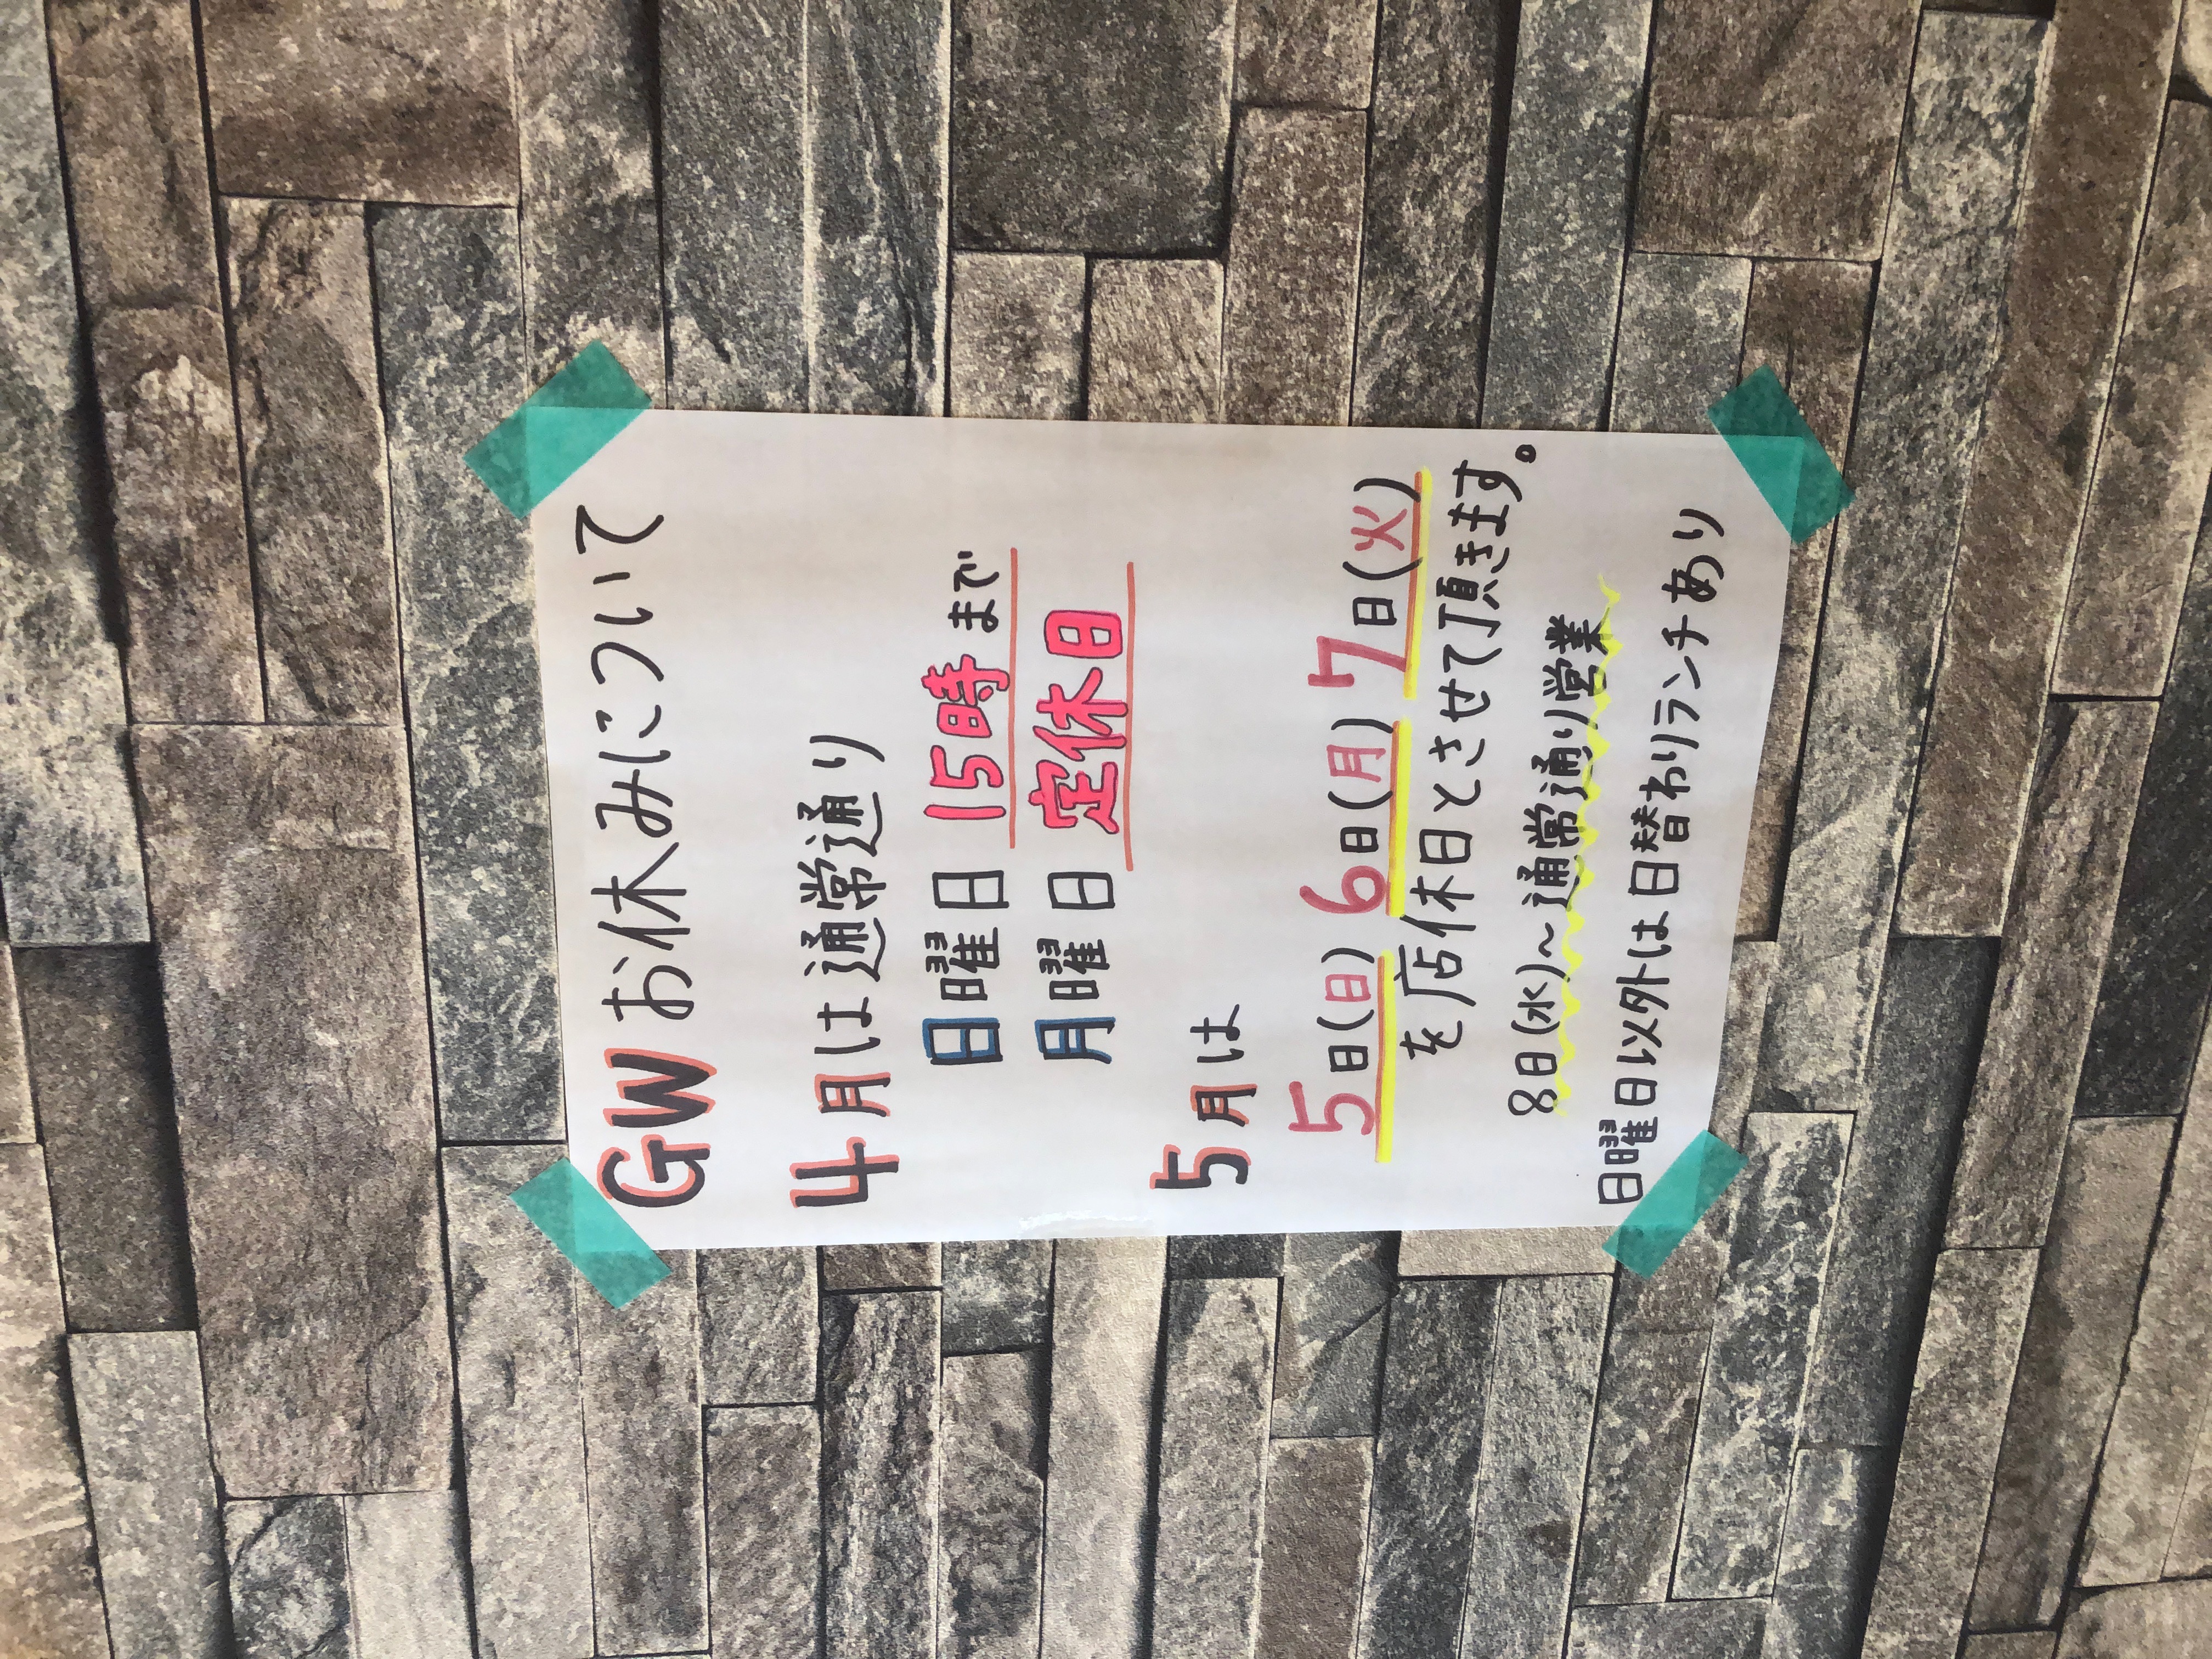 GW お休みについて
4月は通常通り
日曜日 15時まで
月曜日 定休日
5月は
5日(日) 6日(月) 7日(火)
を店休日とさせて頂きます。
8日(水)~通常通り営業
日曜日以外は日替わりランチあり